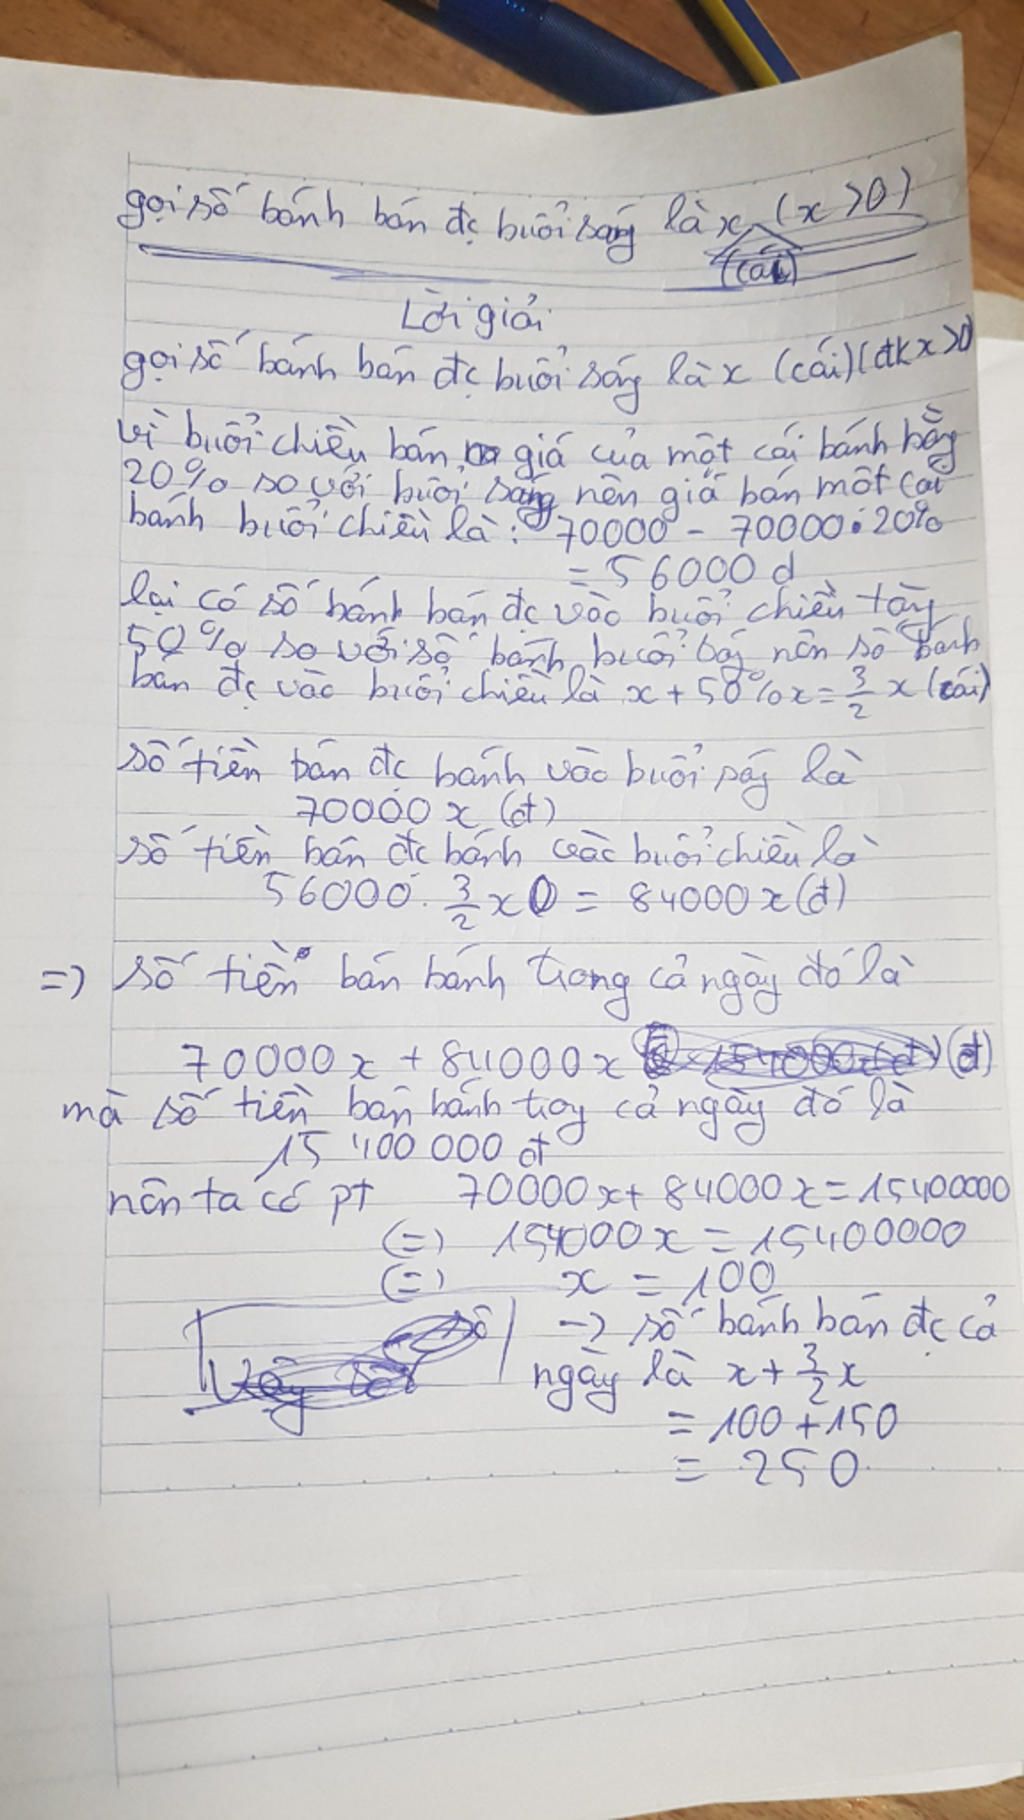 gọi số bánh bán đc buổi sáng là x (x>0)
(cái)
Lời giải
gọi số bánh bán đc buổi sáng là x (cái) (đk x>0
vì buổi chiều bán giá của một cái bánh bằng
20% so với buổi sáng nên giá bán một cái
bánh buổi chiều là: 70000 - 70000.20%
= 56000 đ
lại có số bánh bán đc vào buổi chiều tăng
50% so với số bánh buổi sáng nên số bánh
bán đc vào buổi chiều là x + 50%x = 3/2 x (cái)
số tiền bán đc bánh vào buổi sáng là
70000 x (đ)
số tiền bán đc bánh vào buổi chiều là
56000. 3/2 x = 84000 x (đ)
=> số tiền bán bánh trong cả ngày đó là
70000 x + 84000 x (đ)
mà số tiền bán bánh trong cả ngày đó là
15 400 000 đ
nên ta có pt 70000 x + 84000 x = 15400000
(=) 154000 x = 15400000
(=) x = 100
-> số bánh bán đc cả
ngày là x + 3/2 x
= 100 + 150
= 250